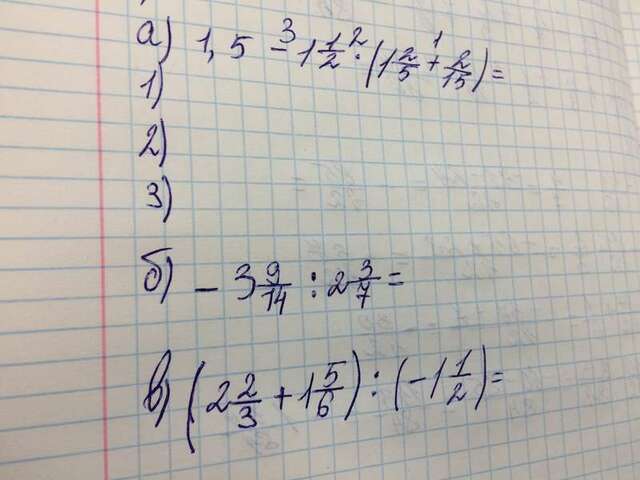 а) 1,5 - 1 1/2 : (1 2/5 + 2/15) =
1)
2)
3)
б) - 3 9/14 : 2 3/7 =
в) (2 2/3 + 1 5/6) : (-1 1/2) =